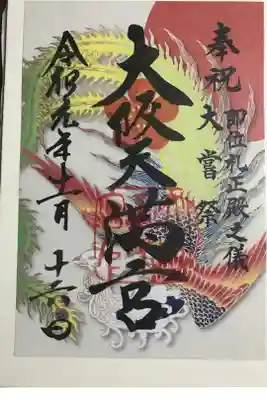 奉祝 即位礼正殿之儀
大嘗祭
大阪天満宮
令和元年十一月十六日